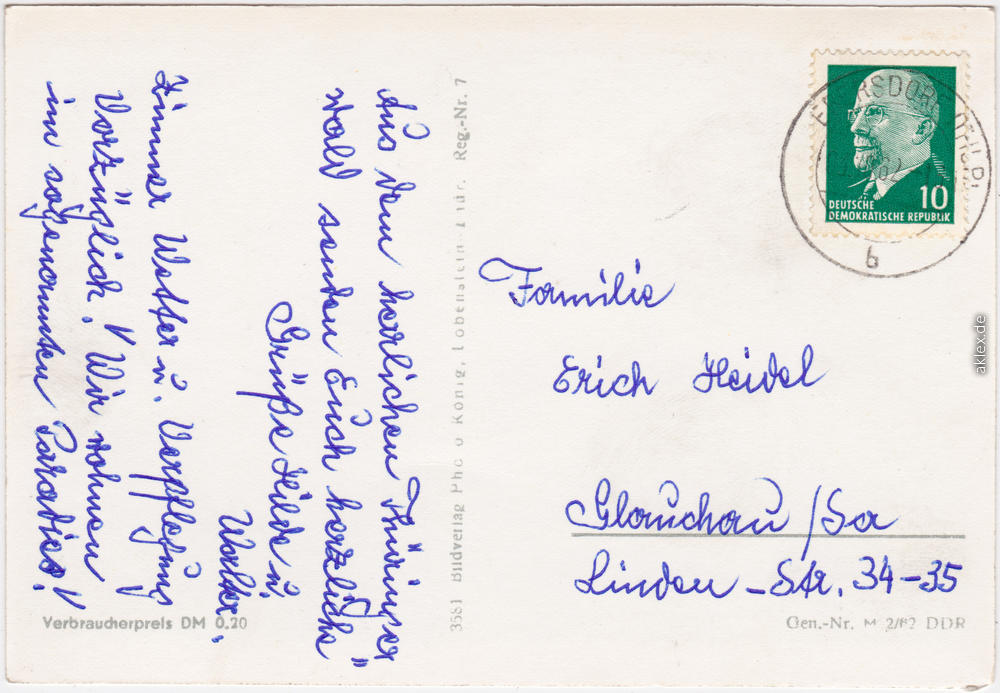 Aus dem herrlichen Thüringer
Wald senden Euch herzliche
Grüße Hilde u.
Walter.
Zimmer Wetter u. Verpflegung
Vorzüglich! Wir wohnen
im sogenannten Paradies!
3581 Bildverlag König, Lobenstein Thür. Reg.-Nr. 7
DEUTSCHE
DEMOKRATISCHE REPUBLIK
10
b
Familie
Erich Heidel
Glauchau/Sa
Linden-Str. 34-35
Verbraucherpreis DM 0.20
Gen.-Nr. M 2/62 DDR
aklex.de